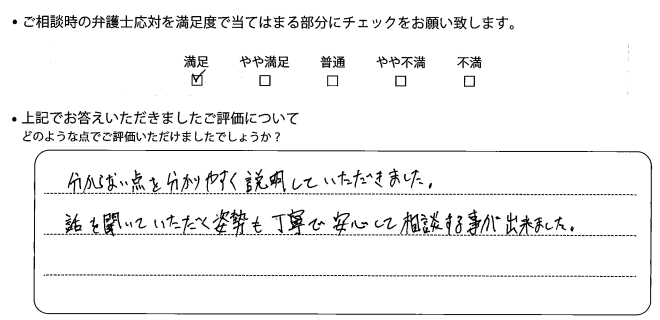 • ご相談時の弁護士応対を満足度で当てはまる部分にチェックをお願い致します。
満足 やや満足 普通 やや不満 不満
☑ □ □ □ □
• 上記でお答えいただきましたご評価について
どのような点でご評価いただけましたでしょうか？
分からない点を分かりやすく説明していただきました。
話を聞いていただく姿勢も丁寧で安心して相談する事が出来ました。